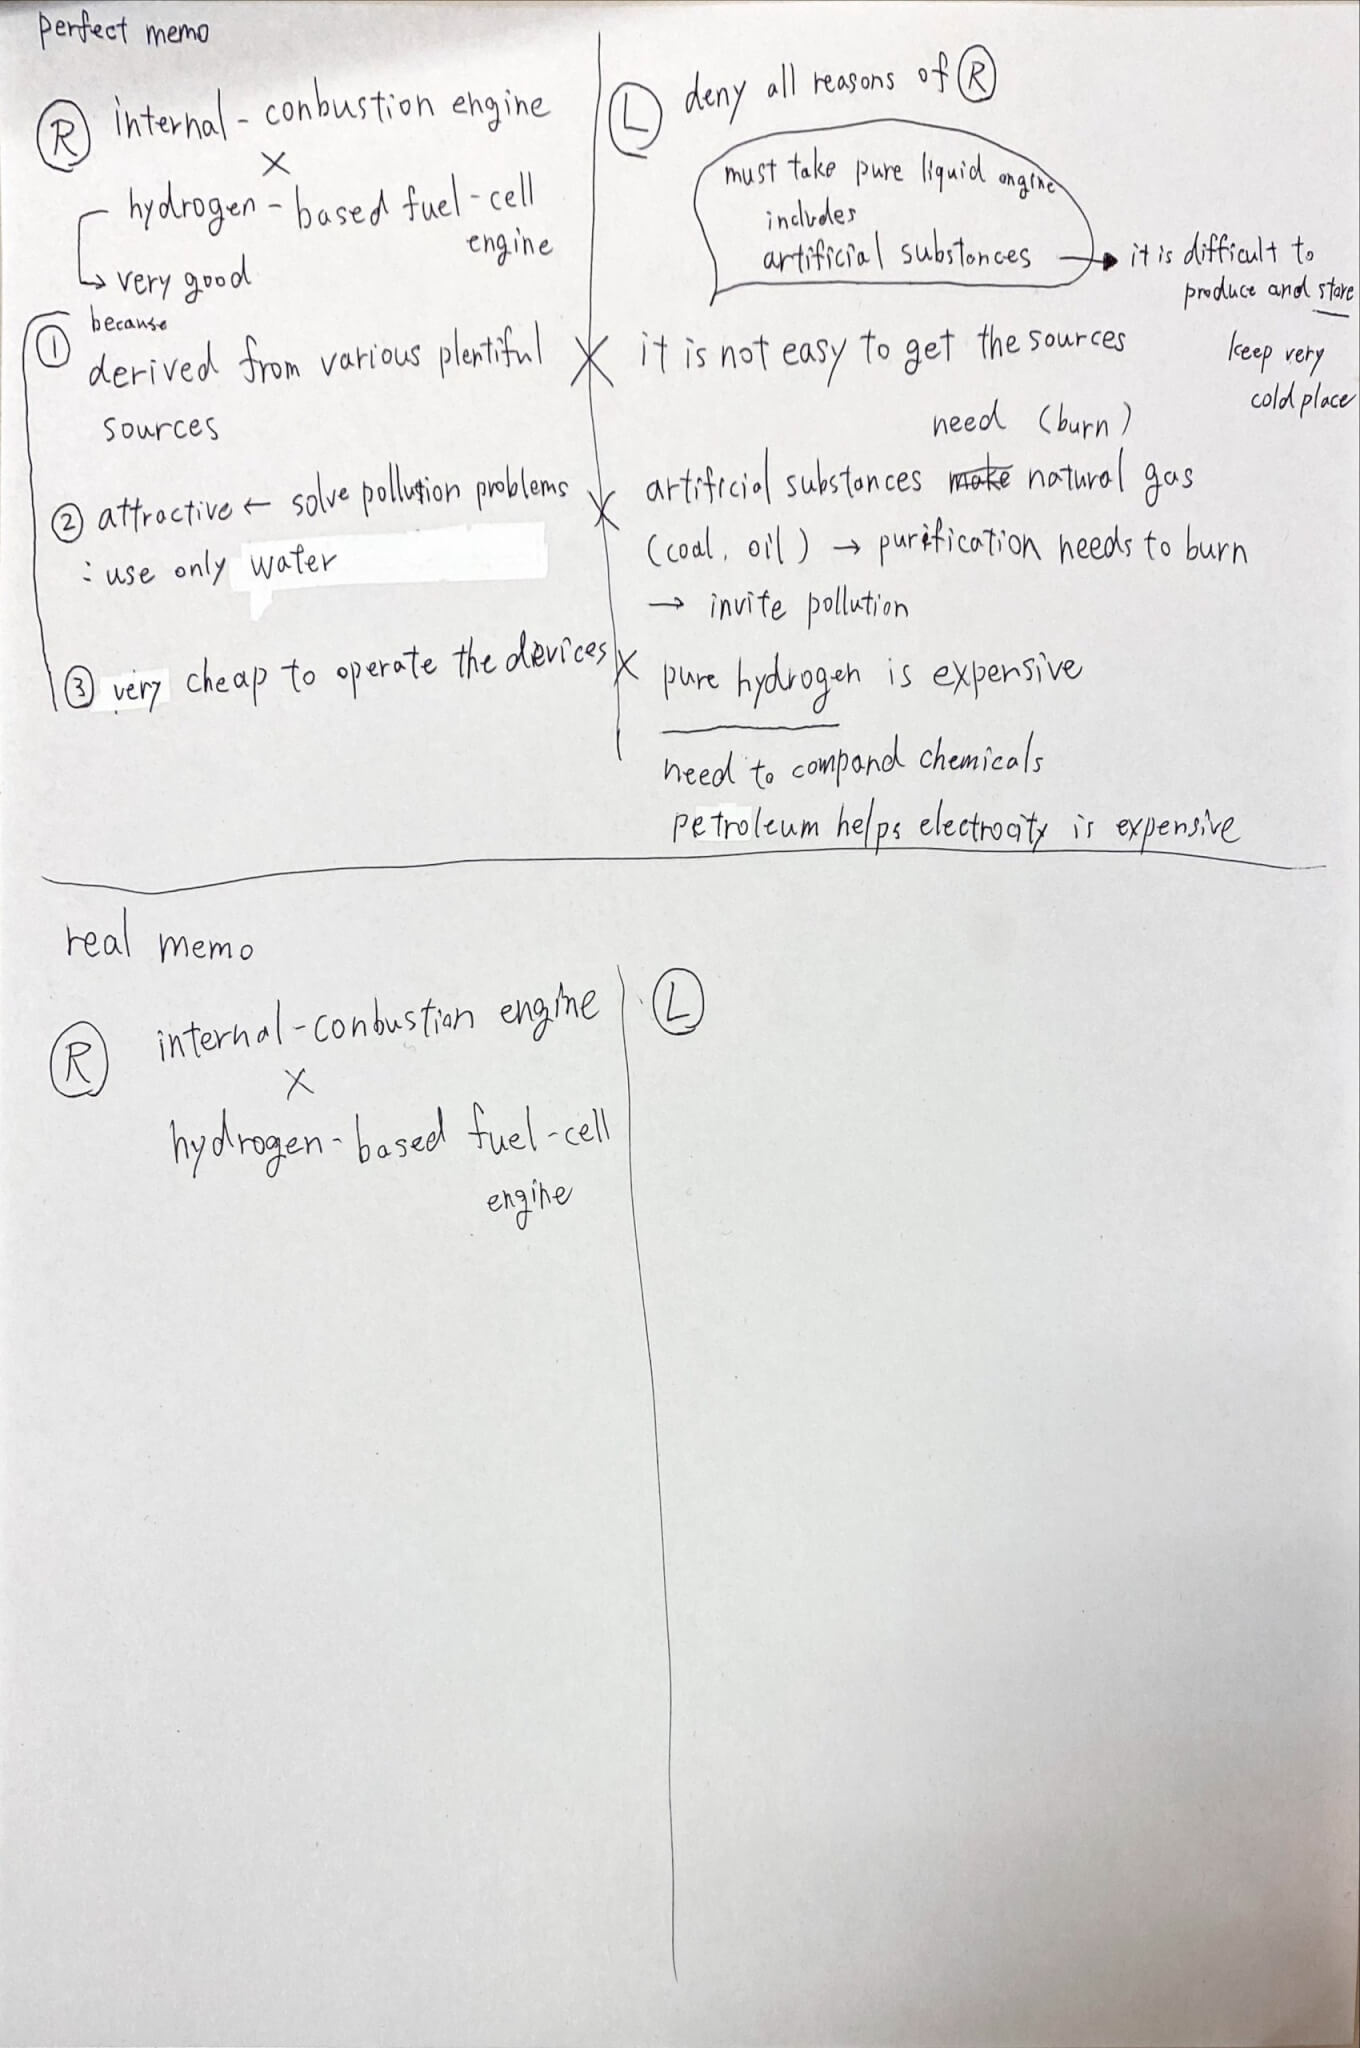 perfect memo
Ⓡ internal-conbustion engine
×
hydrogen-based fuel-cell
engine
↳ very good
because
① derived from various plentiful
sources
② attractive ← solve pollution problems
: use only water
③ very cheap to operate the devices
Ⓛ deny all reasons of Ⓡ
must take pure liquid engine
includes
artificial substances → it is difficult to
produce and store
keep very
cold place
× it is not easy to get the sources
need (burn)
× artificial substances make natural gas
(coal, oil) → purification needs to burn
→ invite pollution
× pure hydrogen is expensive
need to compand chemicals
petroleum helps electrocity is expensive
real memo
Ⓡ internal-conbustion engine
×
hydrogen-based fuel-cell
engine
Ⓛ